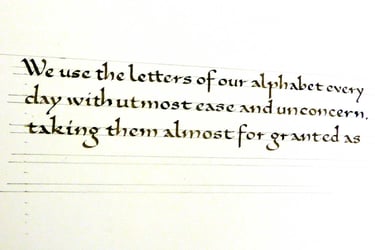 We use the letters of our alphabet every
day with utmost ease and unconcern,
taking them almost for granted as